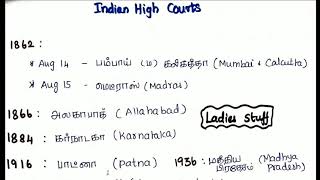 Indian High Courts
1862:
* Aug 14 - பம்பாய் (ம) கல்கத்தா (Mumbai & Calcutta)
* Aug 15 - மெட்ராஸ் (Madras)
1866: அலகாபாத் (Allahabad)
Ladies stuff
1884: கர்நாடகா (Karnataka)
1916: பாட்னா (Patna) 1936: மத்திய பிரதேசம் (Madhya Pradesh)